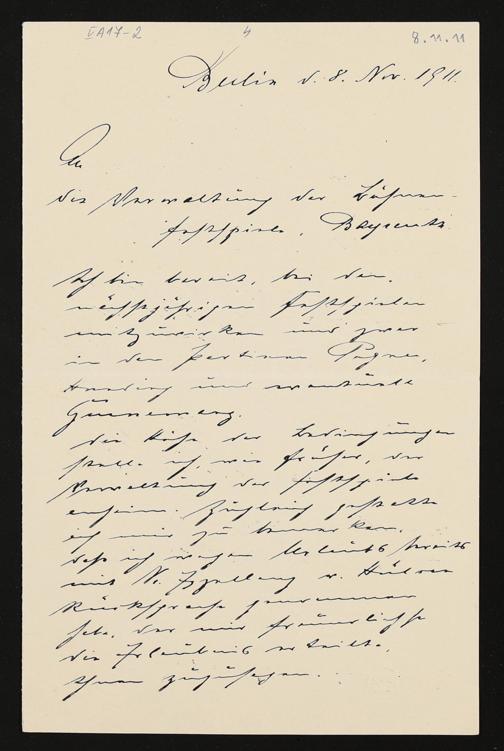 VA17-2
4
8.11.11
Berlin d. 8. Nov. 1911.
An
die Verwaltung der Bühnen-
festspiele, Bayreuth.
Ich bin bereit, bei den
nächstjährigen Festspielen
mitzuwirken und zwar
in den Partieen Pogner,
Hunding und eventuell
Gurnemanz.
Die Höhe der Bedingungen
stelle ich, wie früher, der
Verwaltung der Festspiele
anheim. Zugleich gestatte
ich mir zu bemerken,
daß ich wegen Urlaubs bereits
mit Sr. Excellenz v. Hülsen
Rücksprache genommen
habe, der mir freundlichst
die Erlaubnis erteilte,
Ihnen zuzusagen.